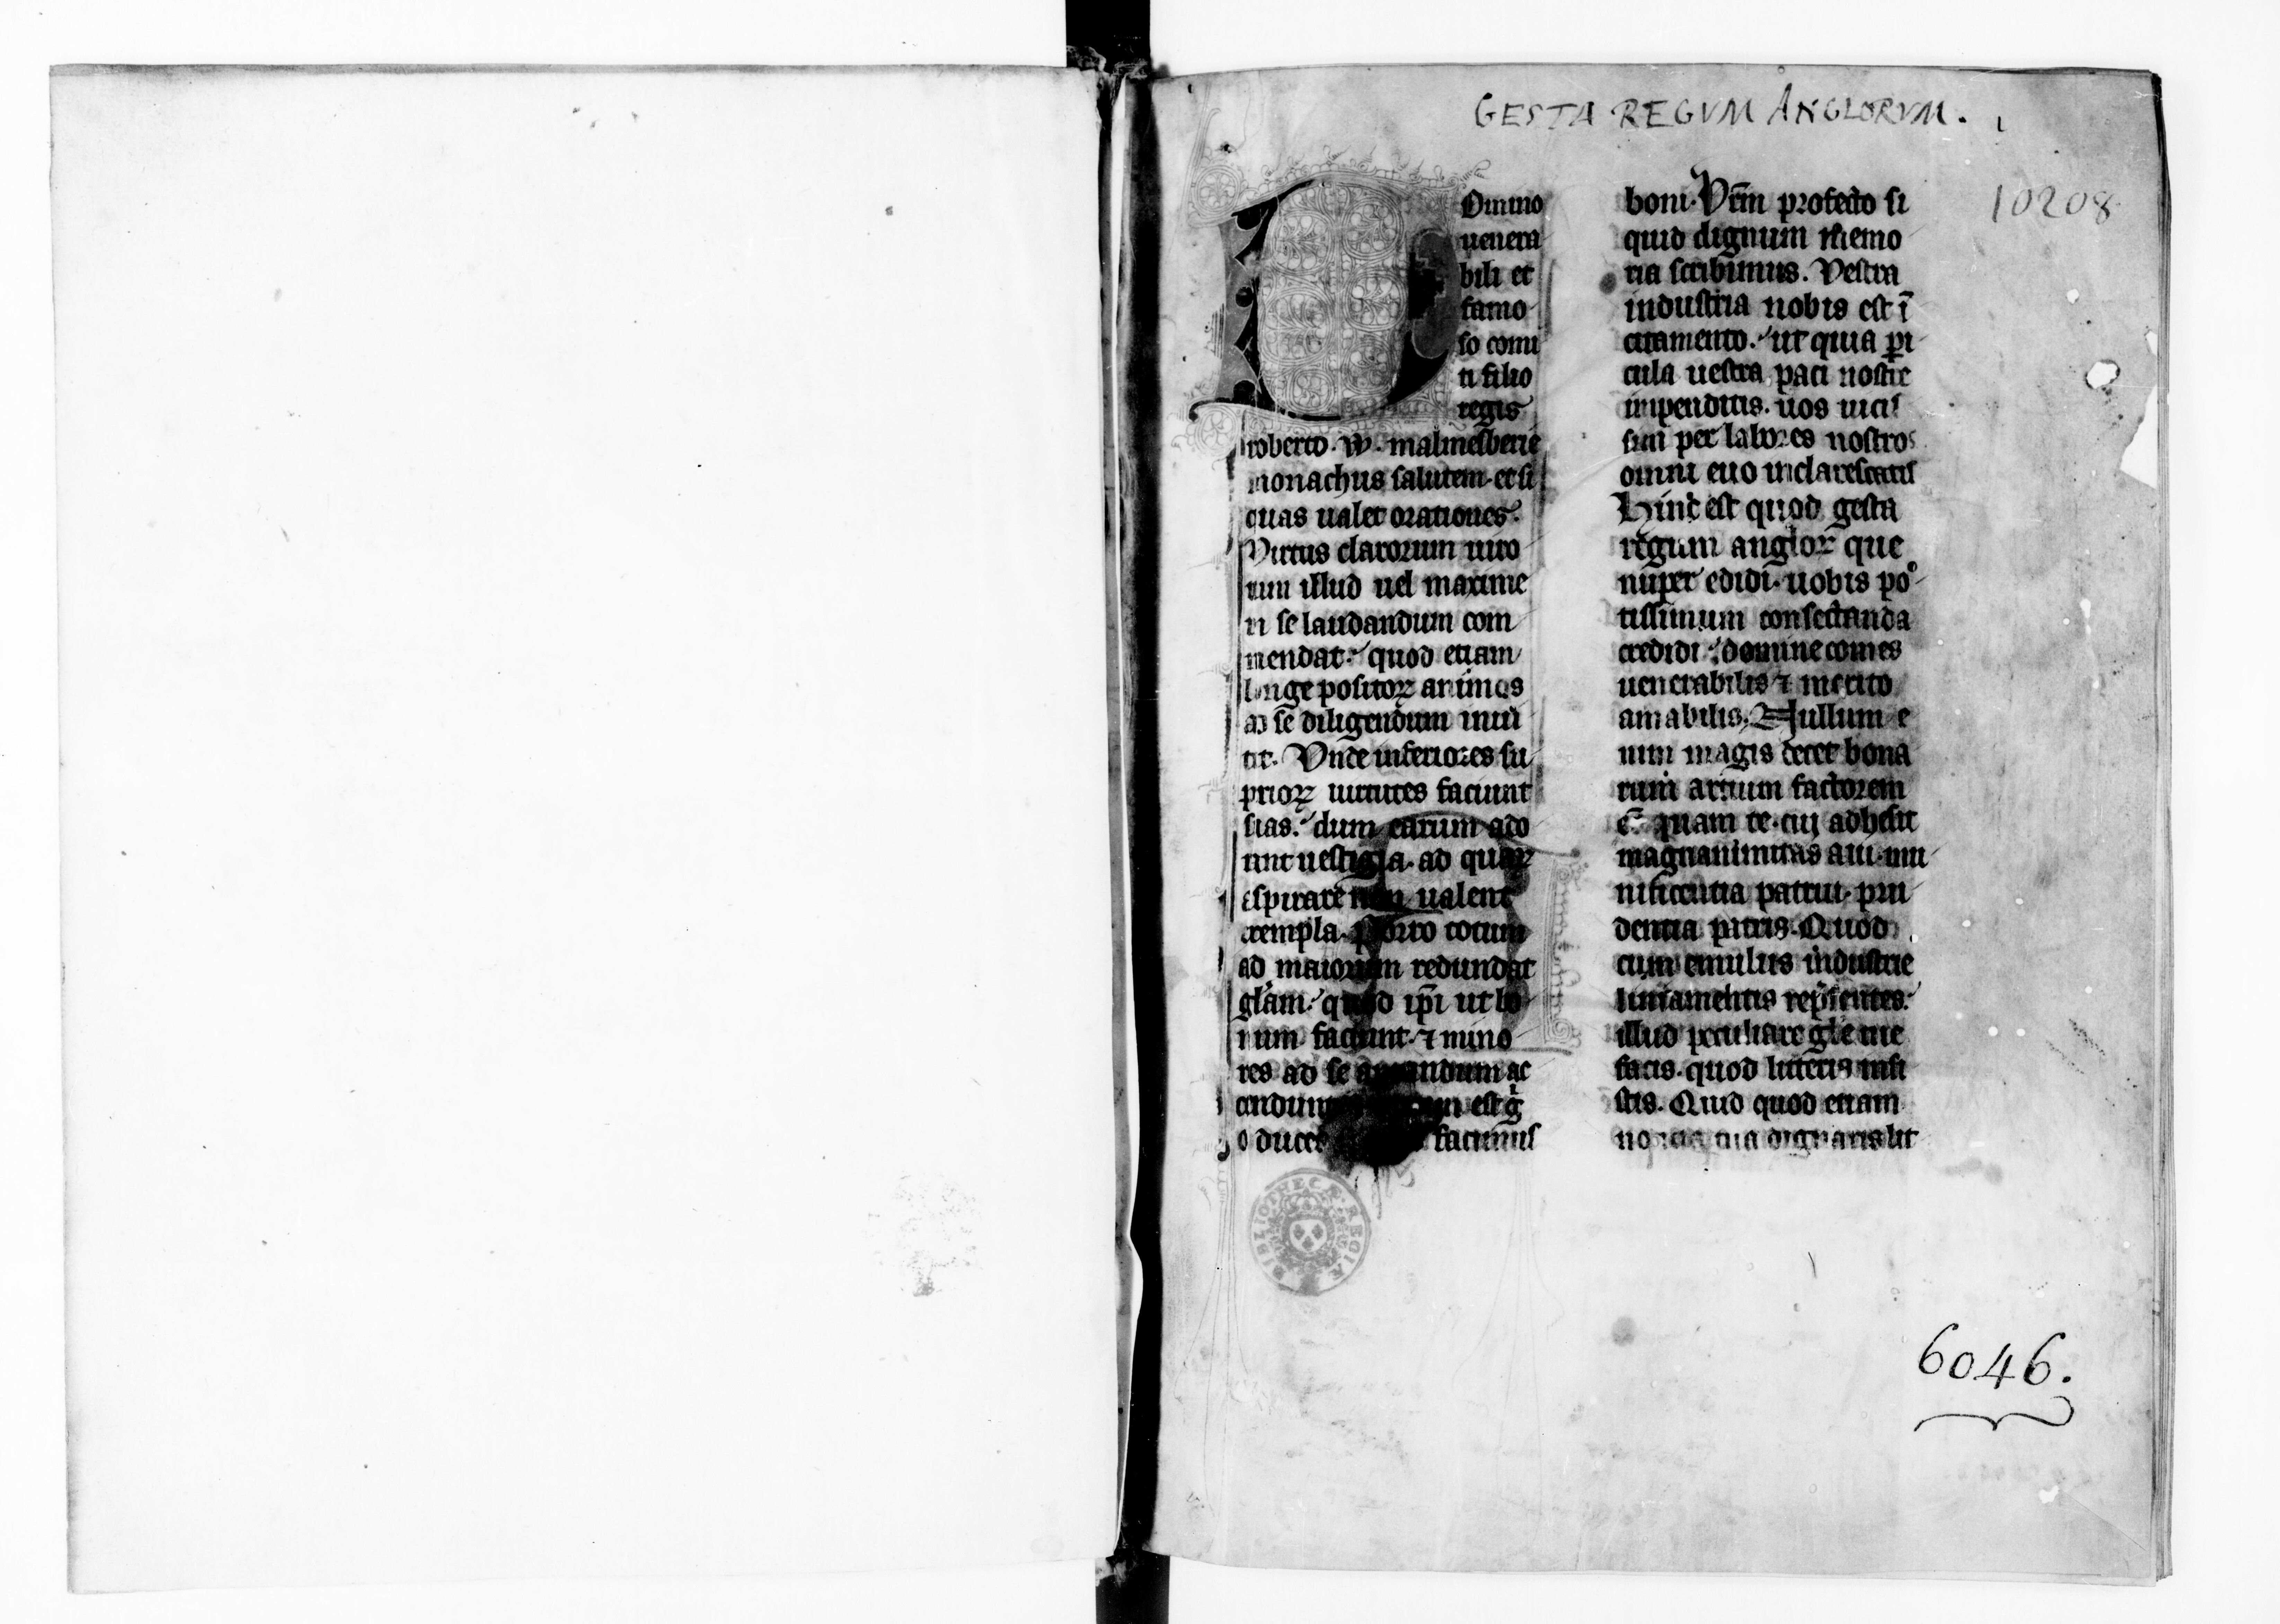 GESTA REGVM ANGLORVM. 1
10208
Domino
uenera
bili et
famo
so comi
ti filio
regis
roberto. W. malmesberie
monachus salutem. et si
quas ualet orationes.
Virtus clarorum uiro
rum illud uel maxime
in se laudandum com
mendat. quod etiam
longe positoꝝ animos
ad se diligendum inui
tat. Vnde inferiores su
prioꝝ uirtutes faciunt
suas. dum earum ado
rant uestigia. ad quaꝝ
aspirare non ualent
exempla. Porro totum
ad maiorum redundat
glam. quod ip̄i ut bo
num faciunt. ⁊ mino
res ad se amandum ac
cendunt est g̍
o duces facimus
boni. Vr̄m profecto si
quid dignum memo
ria scribimus. Vestra
industria nobis est ī
citamento. ut quia ꝑi
cula uestra paci nostre
impenditis. uos uicis
sim per labores nostros
omni euo inclarescatis
Hinc est quod gesta
regum angloꝝ que
nuper edidi. uobis po
tissimum consecranda
credidi. domine comes
uenerabilis ⁊ merito
amabilis. Nullum e
nim magis decet bona
rum artium fautorem
eē. quam te. cui adhesit
magnanimitas aui. mu
nificentia patrui. pru
dentia patris. Quod
cum emulus industrie
liniamentis rep̄sentes.
illud peculiare gl̄e tue
facis. quod litteris insi
stis. Quid quod etiam
noticia tua dignaris lit
BIBLIOTHECÆ REGIÆ
6046.